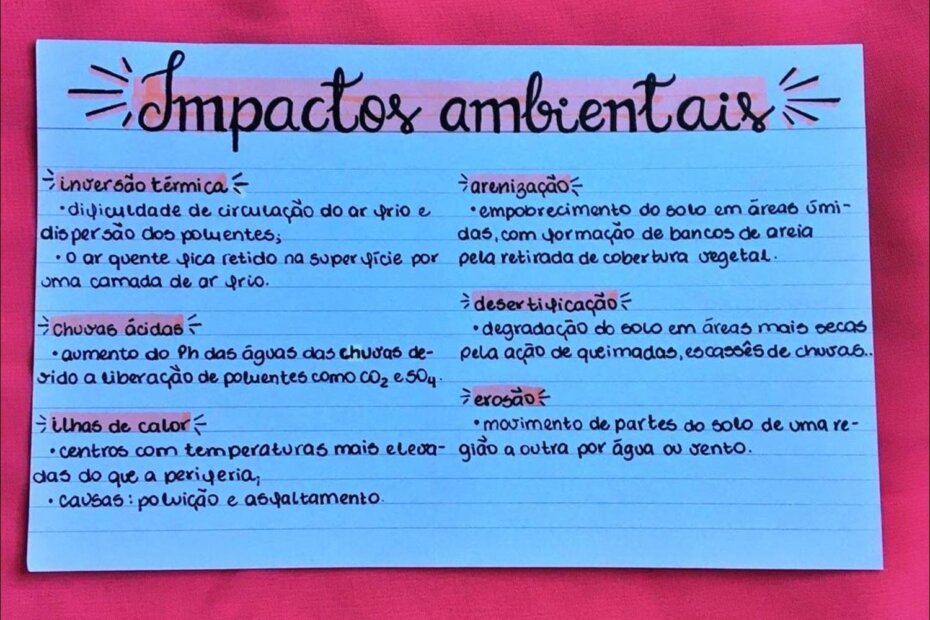 Impactos ambientais
inversão térmica
• dificuldade de circulação do ar frio e
dispersão dos poluentes;
• o ar quente fica retido na superfície por
uma camada de ar frio.
chuvas ácidas
• aumento do Ph das águas das chuvas de-
vido a liberação de poluentes como CO₂ e SO₄.
ilhas de calor
• centros com temperaturas mais eleva-
das do que a periferia;
• causas: poluição e asfaltamento.
arenização
• empobrecimento do solo em áreas úmi-
das, com formação de bancos de areia
pela retirada de cobertura vegetal.
desertificação
• degradação do solo em áreas mais secas
pela ação de queimadas, escassês de chuvas..
erosão
• movimento de partes do solo de uma re-
gião a outra por água ou vento.